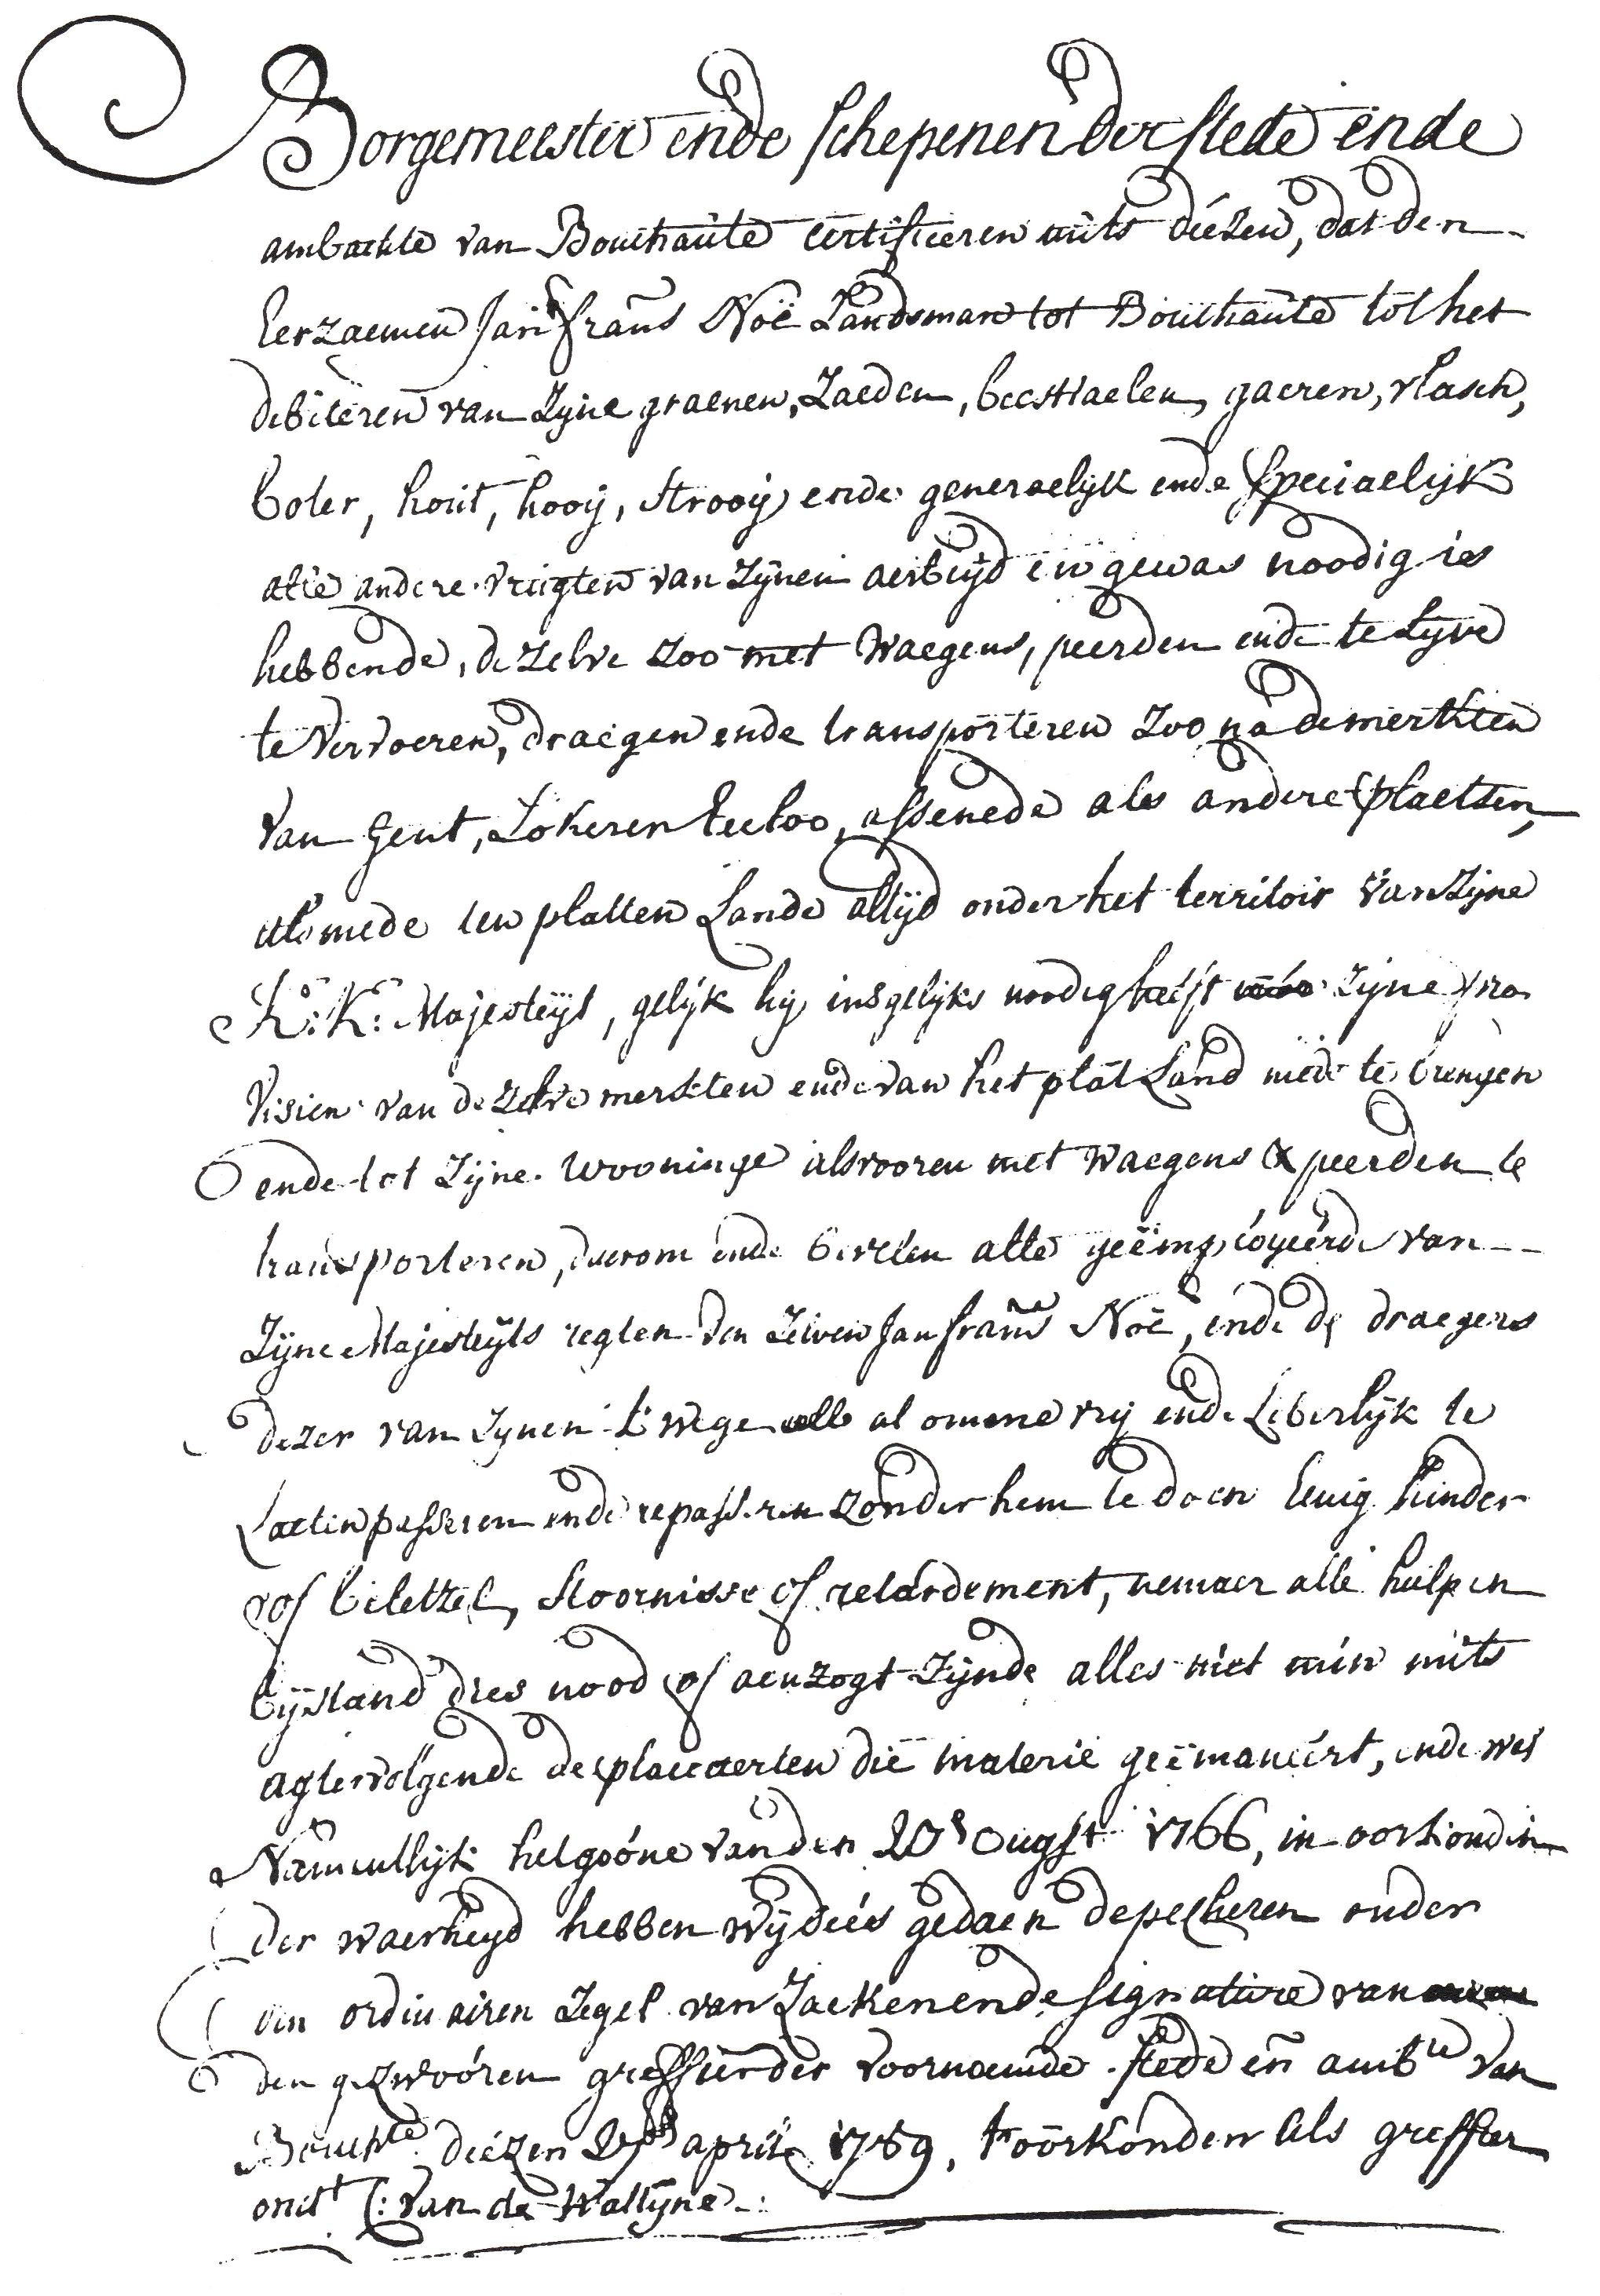 Borgemeester ende schepenen der stede ende
ambachte van Bouchaute certificeren mits diézen, dat den
Eerzaemen Jan frans Noë Landsman tot Bouchaute tot het
debiteren van zyne graenen, Zaeden, beestiaelen, gaeren, vlasch,
boter, hout, hooij, strooij ende generaelijk ende speciaelijk
alle andere vrugten van zynen aerbeyd en gewas noodig is
hebbende, de zelve zoo met Waegens, peerden ende te Lyve
te Vervoeren, draegen ende transporteren zoo na de merkten
van Gent, Lokeren Eecloo, assenede als andere plaetsen,
als mede ten platten Lande altijd onder het territoir van Zijne
K: K: Majesteÿt, gelÿk hij insgelijks noodig heeft zijne pro
visien van de zelve merkten ende van het plat Land mede te brengen
ende tot Zijne Wooninge alsvooren met Waegens & peerden te
transporteren, daerom ende bevelen alle geëmployeérde van
Zijne Majesteÿts regten den Zelven Jan frans Noë, ende de draegers
dezer van zynen 't wege al omme vrij ende Liberlijk te
Laeten passeren ende repasseren zonder hem te doen Eenig hinder
of beletzel, stoornisse of retardement, nemaer alle hulp en
bijstand dies nood of aenzogt Zijnde alles niet min mits
agtervolgende de placcaerten dië materie geëmaneért, ende wel
Namentlijk hetgoóne van den 20s ougst 1766, in oorkonden
der waerheyd hebben wij diés gedaen depecheren onder
den ordinairen Zegel van Zaeken ende signature van
den gezwoóren greffier der voornoemde stede eñ ambte van
Bouchte diézen 27s april 1789, t'oorkonden als greffier
ondt (: Van de Wallÿne :